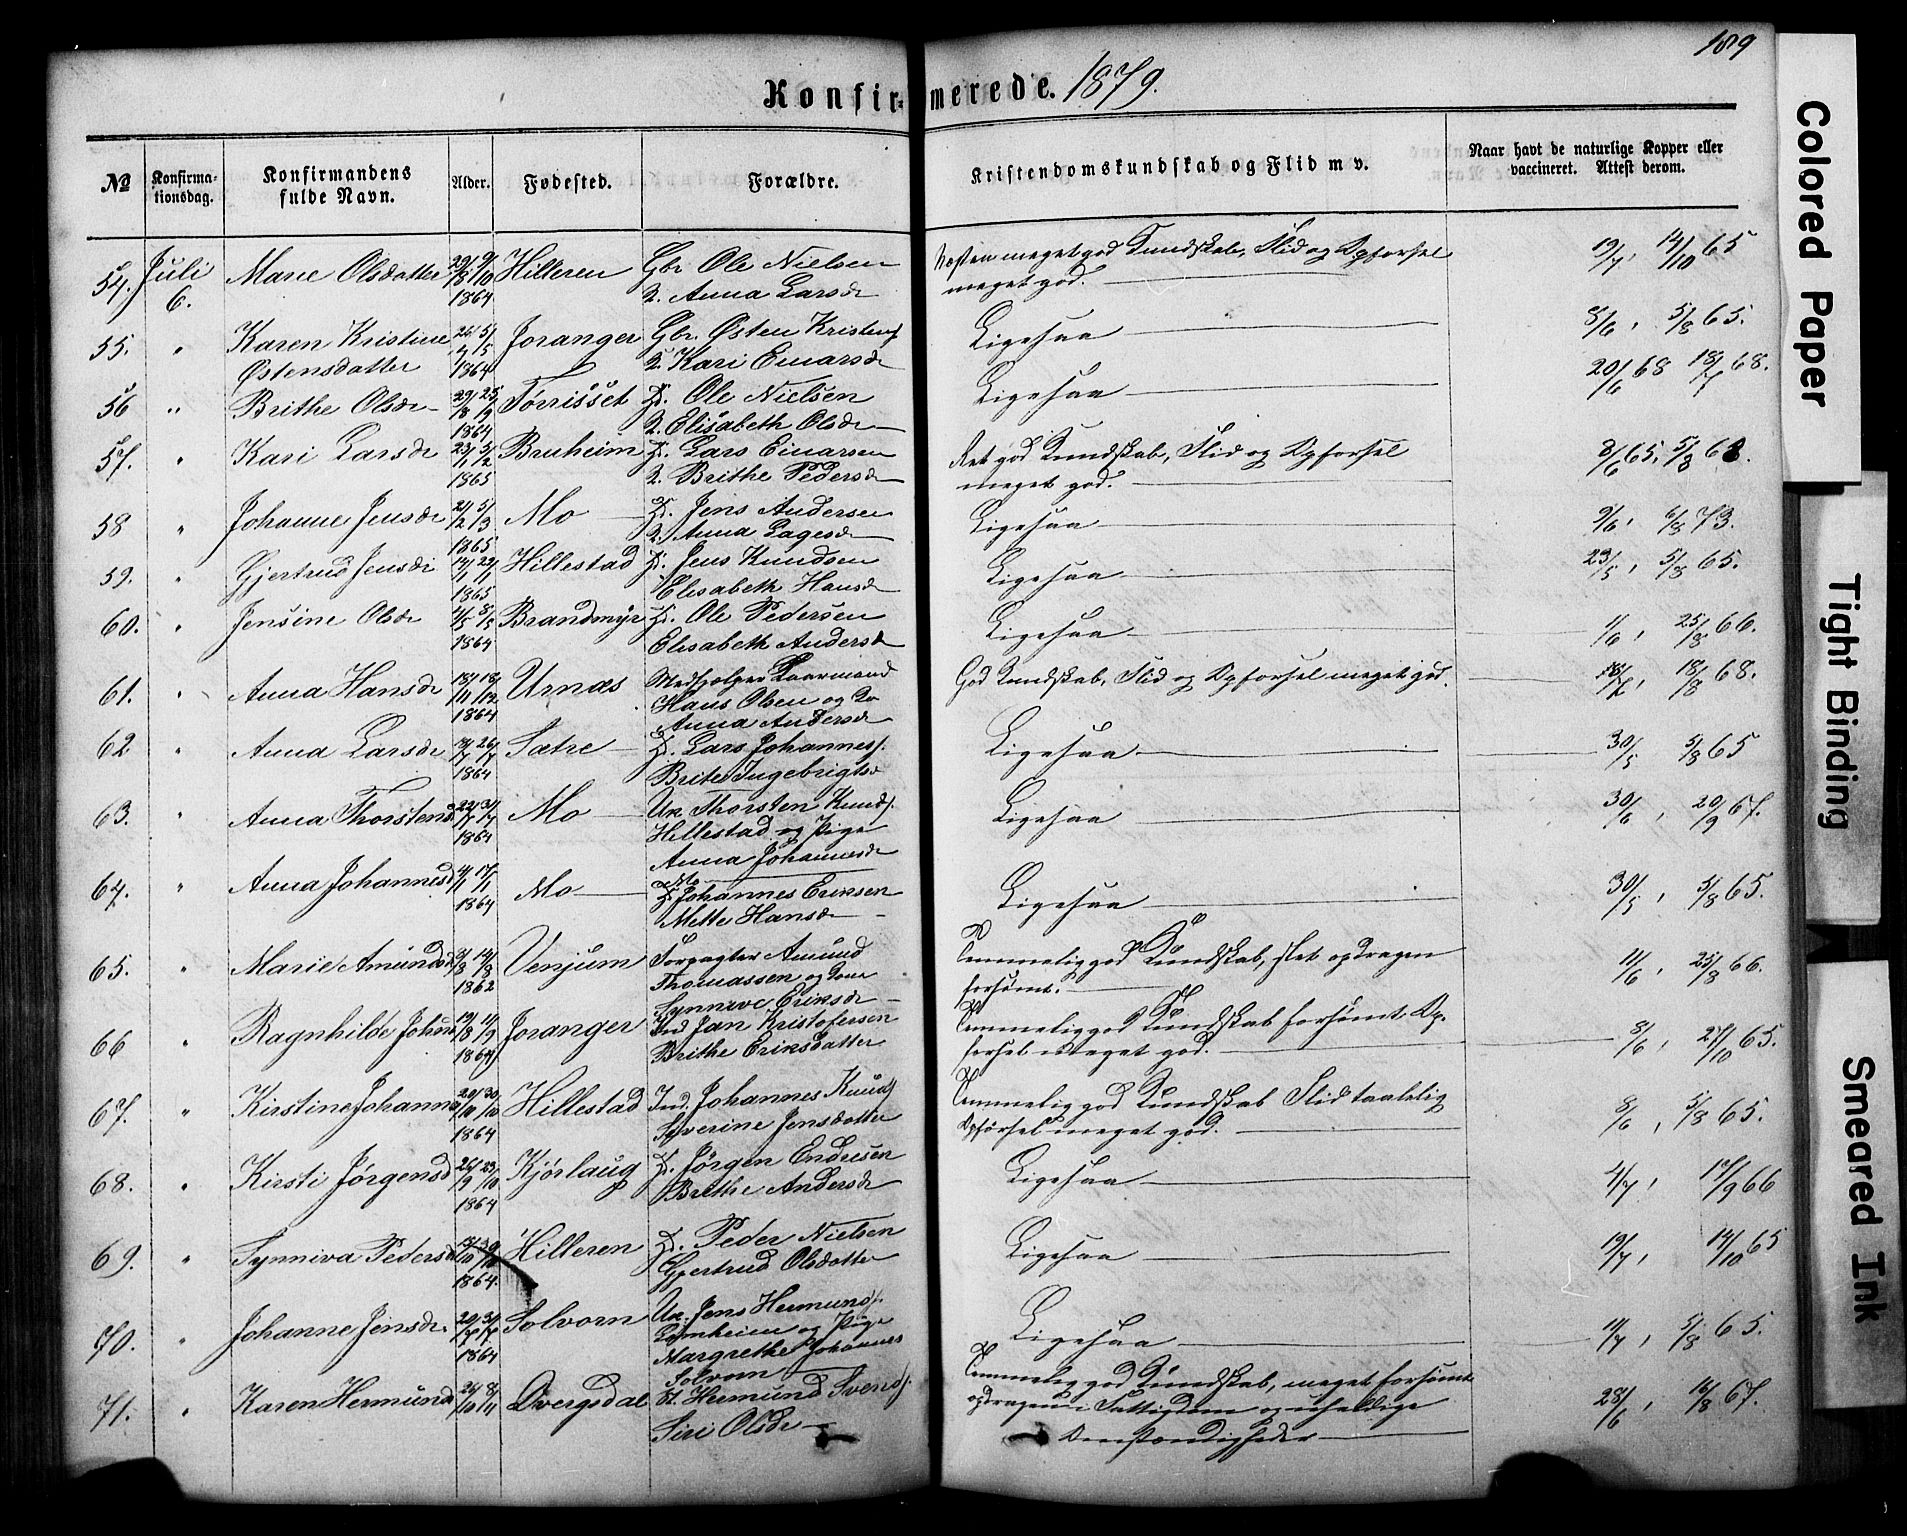 189
Konfirmerede. 1879.
№ Konfirmationsdag. Konfirmandens fulde Navn. Alder. Fødested. Forældre. Kristendomskundskab og Flid m v. Naar havt de naturlige Kopper eller vaccineret. Attest derom.
54. Juli 6. Marie Olsdatter 1864 Hilleren Gbr Ole Nielsen
Anna Larsdr
Næsten meget god Kundskab, Flid og Opførsel
meget god. 19/7, 14/10 65
55. " Karen Kristine 26/4 5/5 Joranger Gbr. Østen Kristens.
Østensdatter 1864 Kari Einarsdr
Ligesaa 8/6, 5/8 65.
56 " Brithe Olsdr 29/8 25/9 1864 Tørrisset Ole Nielsen
Elisabeth Olsdr
Ligesaa 20/6 68 18/7 68.
57. " Kari Larsdr 23/1 5/2 1865 Bruheim Lars Einarsen
Brithe Pedersdr
Ret god Kundskab, Flid og Opførsel
meget god. 8/6 65, 5/8 68.
58 " Johanne Jensdr 21/2 5/3 1865 Mo Jens Andersen
Anna Lagesdr
Ligesaa 9/6, 6/8 73.
59. " Gjertrud Jensdr 14/1 22/1 1865 Hillestad Jens Knudsen
Elisabeth Hansdr
Ligesaa 23/5, 5/8 65.
60. " Jensine Olsdr 4/5 8/5 1864 Brandmyr Ole Pedersen
Elisabeth Andersdr
Ligesaa 1/6, 25/8 66.
61. " Anna Hansdr 18/11 18/12 1864 Urnæs
Hans Olsen og
Anna Andersdr
God Kundskab, Flid og Opførsel meget god. 18/7, 18/8 68.
62 " Anna Larsdr 26/7 1864 Sætre Lars Johanness.
Brite Ingebrigtsd
Ligesaa 30/5 5/8 65
63. " Anna Thorstensd 22/7 31/7 1864 Mo Uk. Thorsten Knuds.
Hillestad og Pige
Anna Johannesdr
Mo
Ligesaa 30/6, 20/9 67.
64. " Anna Johannesd 4/1 17/1 1864 Mo Johannes Eriksen
Mette Hansdr
Ligesaa 30/5, 5/8 65.
65. " Marie Amundsd 14/8 1862 Venjum Forpagter Amund
Thomassen og Kone
Synneve Eriksdr
Temmelig god Kundskab, slet opdragen
forsømt. 11/6, 25/8 66.
66 " Ragnhilde Johns 19/8 11/9 1864 Joranger Ind Jan Kristofersen
Brithe Eriksdatter
Temmelig god Kundskab forsømt. Op-
førsel meget god. 8/6, 27/10 65.
67. " Kirstine Johanns 20/10 30/10 1864 Hillestad Ind. Johannes Knuds.
Severine Jensdatter
Temmelig god Kundskab Flid taalelig
Opførsel meget god. 8/6, 5/8 65.
68. " Kirsti Jørgensd 26/9 23/10 1864 Kjørlaug Jørgen Endresen
Brithe Andersdr
Ligesaa 4/7, 17/9 66
69. " Synniva Pedersd 1864. Hilleren Peder Nielsen
Gjertrud Olsdatter
Ligesaa 19/7, 14/10 65
70. " Johanne Jensdr. 20/7 31/7 1864 Solvorn Uk. Jens Hermunds.
Lomheim og Pige
Margrethe Johannes
Solvorn
Ligesaa 11/7, 5/8 65.
71. " Karen Hermunds 24/10 8/11 Dvergsdal St. Hermund Svends.
Siri Olsdr
Temmelig god Kundskab, meget forsømt
opdragen i Fattigdom og uheldige
Omstændigheder 28/6, 16/8 67.
Colored Paper
Tight Binding
Smeared Ink